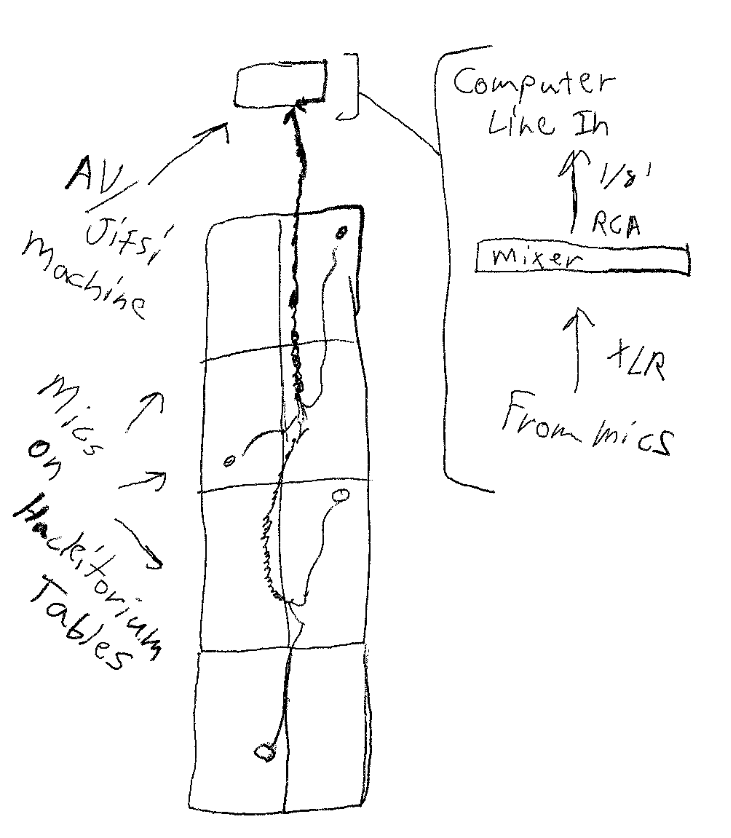 AV/
Jitsi
Machine
Mics
on
Hackitorium
Tables
Computer
Line In
1/8'
RCA
Mixer
XLR
From mics